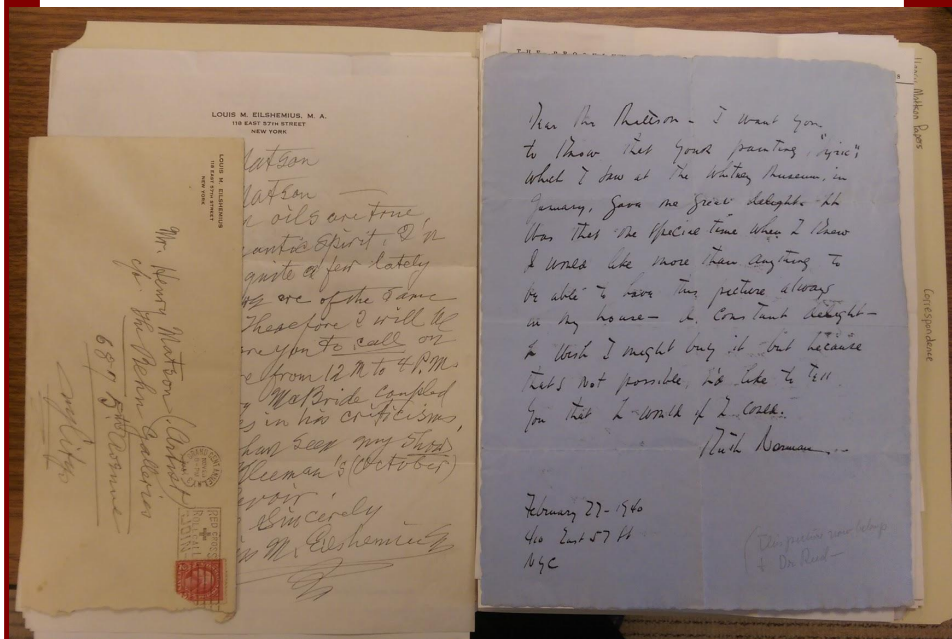 LOUIS M. EILSHEMIUS, M. A.
118 EAST 57TH STREET
NEW YORK
Matson
Matson —
oils are true,
antic spirit. I'n
quite a few lately
are of the same
Therefore I will be
you to call on
from 12 M to 4 P.M.
McBride coupled
in his criticisms,
seen my show
Kleeman's (October)
Sincerely
M. Eilshemius
LOUIS M. EILSHEMIUS
118 EAST 57TH STREET
NEW YORK
Mr. Henry Matson (Artist)
c/o the Gallerics
5th Avenue
City
GRAND CENTRAL
RED CROSS
ROLL CALL
JOIN
Dear Mr Mattson - I want you
to know that your painting,
which I saw at the Whitney Museum, in
January, gave me great delight - It
was that one special time when I knew
I would like more than anything to
be able to have this picture always
in my house - a constant delight -
I wish I might buy it but because
that's not possible, I'd like to tell
you that I would if I could.
Ruth Norman
February 27 - 1940
East 57 St
NYC
Henry Mattson Papers
Correspondence